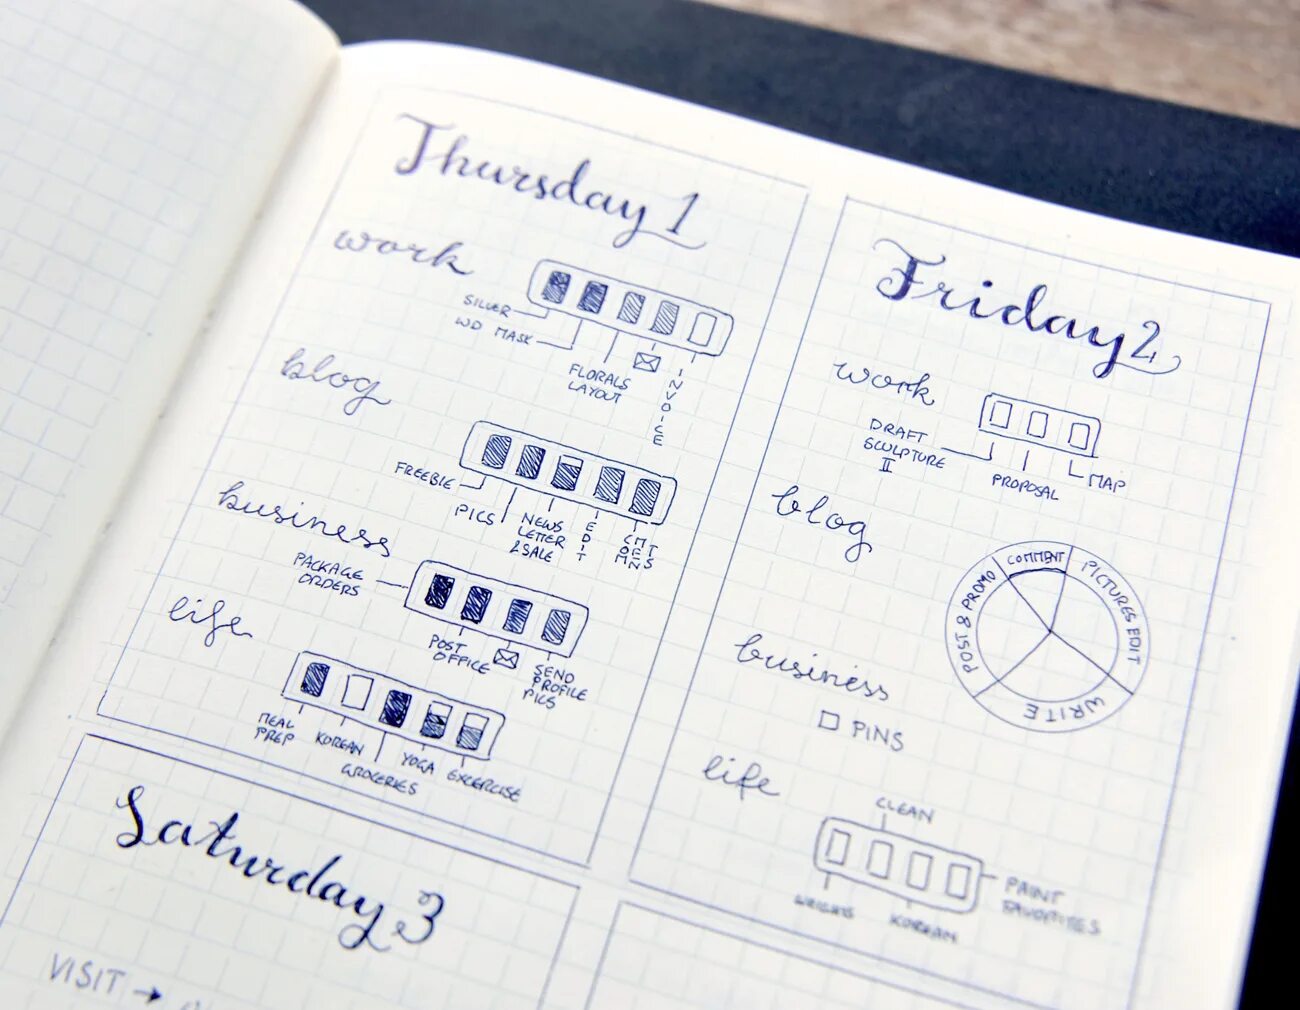 Thursday 1
work
SILVER
WD MASK
FLORALS
LAYOUT
INVOICE
blog
FREEBIE
PICS
NEWS
LETTER
& SALE
EDIT
COMMENTS
business
PACKAGE
ORDERS
POST
OFFICE
SEND
PROFILE
PICS
life
MEAL
PREP
KOREAN
GROCERIES
YOGA
EXCERCISE
Friday 2
work
DRAFT
SCULPTURE
II
PROPOSAL
MAP
blog
COMMENT
PICTURES EDIT
WRITE
POST & PROMO
business
PINS
life
CLEAN
WEIGHTS
KOREAN
PAINT
FAVORITES
Saturday 3
VISIT →